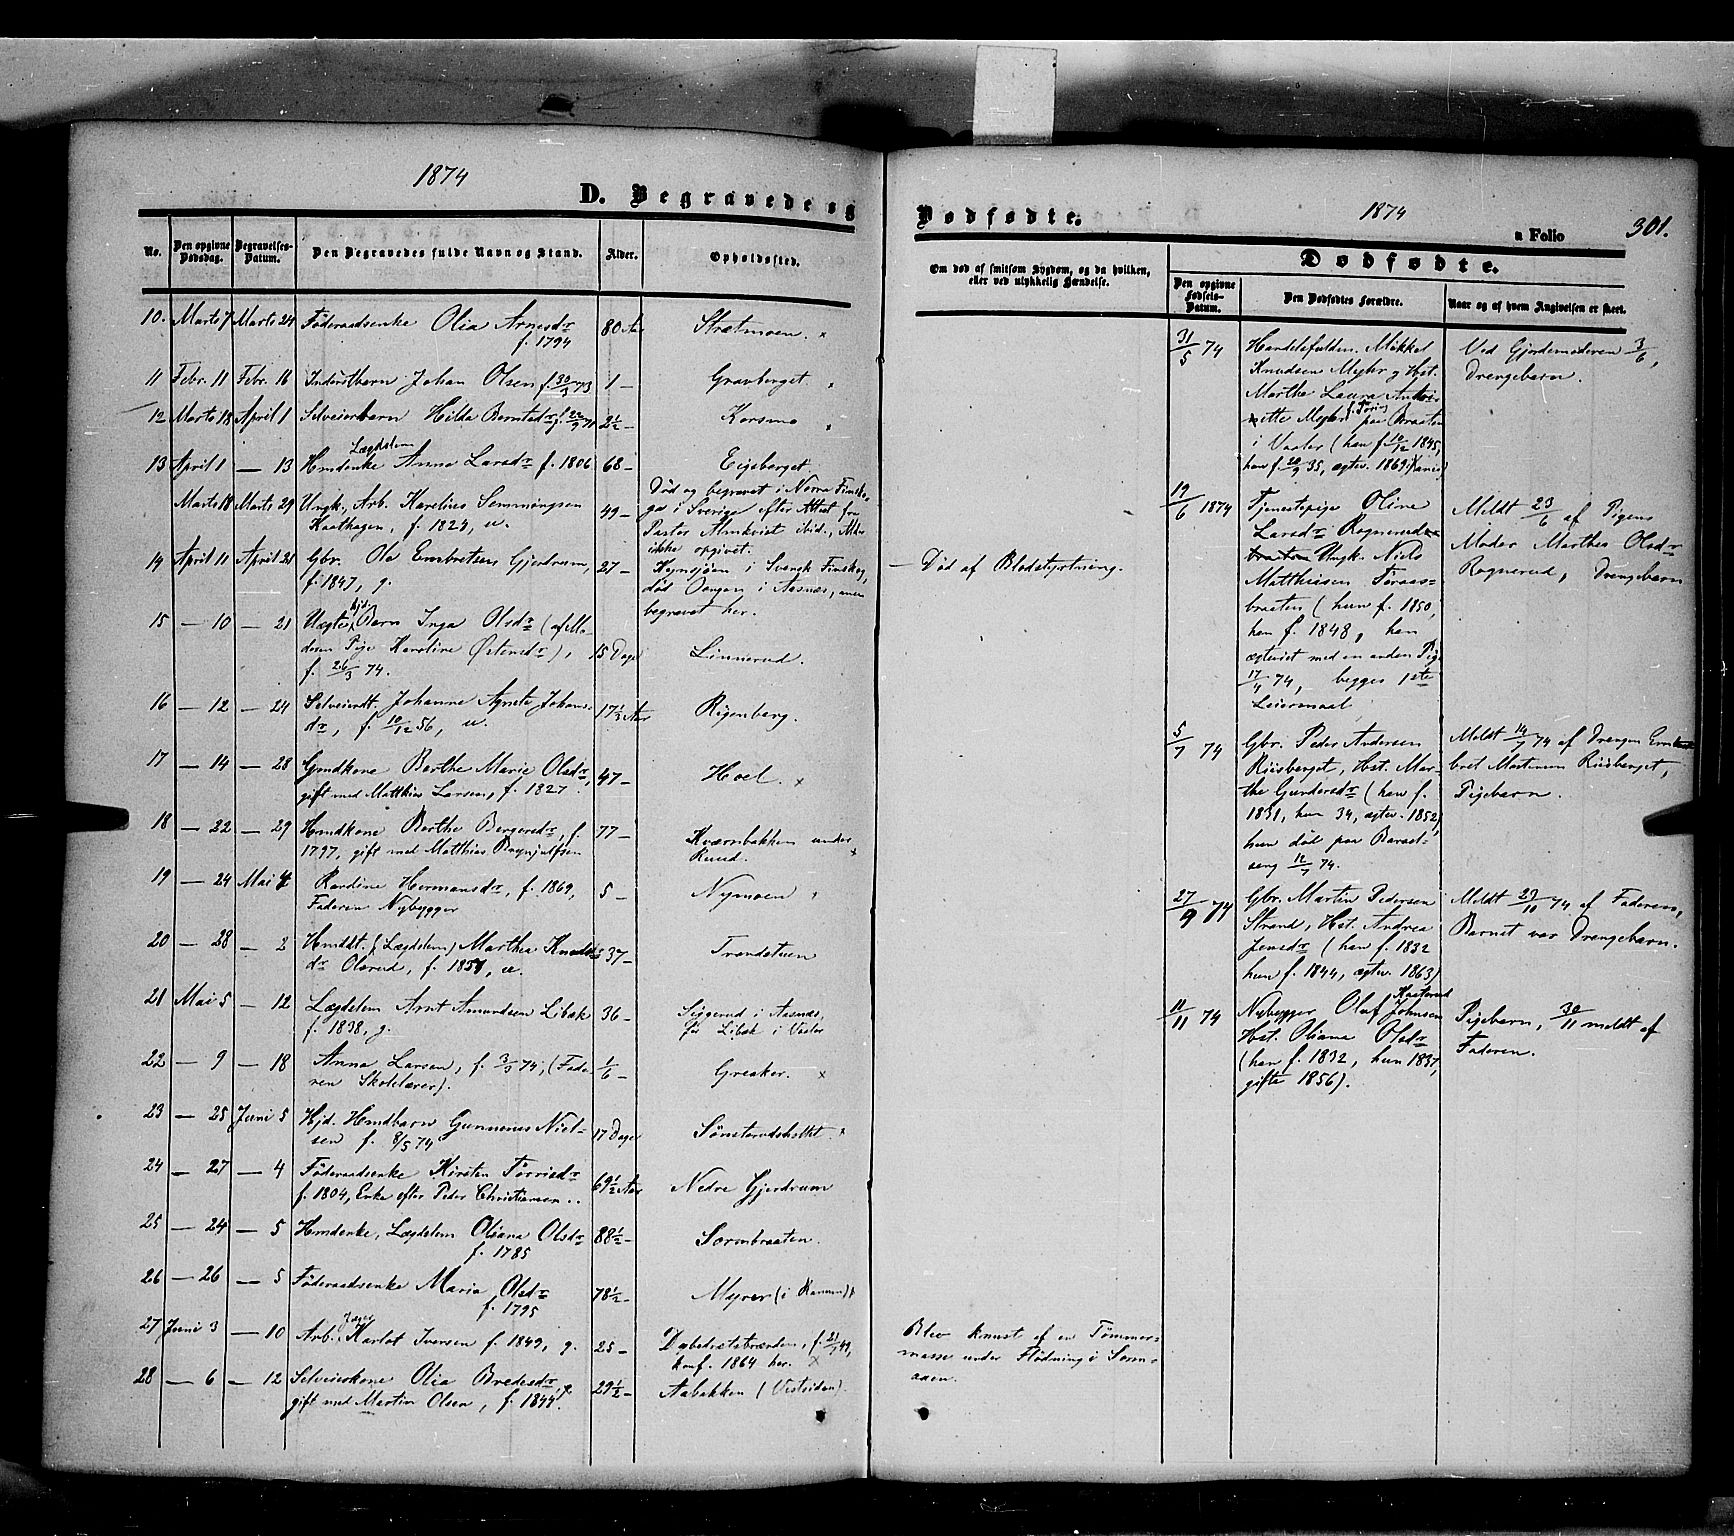 1874
D. Begravede og
No.
Den opgivne Dødsdag.
Begravelses-Datum.
Den Begravedes fulde Navn og Stand.
Alder.
Opholdssted.
10. Marts 7 Marts 24 Føderaadsenke Olia Arnesdr 80 Aar Strætmoen.
f. 1794
11 Febr. 11 Febr. 16 Inderstbarn Johan Olsen f. 30/3 73 1 — Gravberget
12 Marts 18 April 1 Selveierbarn Hilda Berntsdr f. 22/9 71 2½ — Korsmo
Lægdslem
13 April 1 — 13 Hmdenke Anna Larsdr f. 1806 68 — Eigsberget.
Marts 18 Marts 29 Ungk. Arb. Karelius Semmingsen 49 — Død og begravet i Norra Finsko-
Kaathagen, f. 1824, u. ga i Sverige efter Attest fra
Pastor Almkvist ibid., Alder
ikke opgivet.
14 April 11 April 21 Gbr. Ole Embretsen Gjerdrum, 27 — Kynsjøen i Svensk Finskog,
f. 1847, g. død Vangen i Aasnæs, men
begravet her.
15 — 10 — 21 Uægte hjd. Barn Inga Olsdr (af Mo-
deren Pige Karoline Østensdr), 15 Dage Linnerud.
f. 26/3 74.
16 — 12 — 24 Selveierdt. Johanne Agnete Johans- 17⅓ Aar Rigenberg.
dr, f. 10/12 56, u.
17 — 14 — 28 Gmdkone Berthe Marie Olsdr, 47 — Hoel.
gift med Matthis Larsen, f. 1827
18 — 22 — 29 Hmdkone Berthe Bergersdr, f. 77 — Kværnbakken under
1797, gift med Matthias Brynjulfsen Ruud.
19 — 24 Mai 4 Karoline Hermansdr, f. 1869, 5 — Nymoen
Faderen Nybygger
20 — 28 — 2 Hmddt. (Lægdslem) Marthea Knuds- 37 — Trondstuen
dr Olsrud, f. 1851, u.
21 Mai 5 — 12 Lægdslem Arnt Amundsen Libak 36 — Siggerud i Aasnæs,
f. 1838, g. før Libak i Vaaler
22 — 9 — 18 Anna Larsen, f. 3/3 74, (Fade- 1/6 — Greaker.
ren Skolelærer).
23 — 25 Juni 5 Hjd. Hmdbarn Gunnerius Niel- 17 Dage Sønsterudsholtet.
sen f. 8/5 74
24 — 27 — 4 Føderaadsenke Kirsten Tørrisdr 69½ Aar Nedre Gjerdrum
f. 1804, Enke efter Peder Christiansen.
25 — 24 — 5 Hmdenke, Lægdslem Oliana Olsdr 88½ — Sormbraaten.
f. 1785
26 — 26 — 5 Føderaadsenke Maria Olsdr 78½ — Myrer (i Kannen)
f. 1795
27 Juni 3 — 10 Arb. Karlot Iversen f. 1849, g. 25 —
konf. 1864 her.
28 — 6 — 12 Selveierkone Olia Bredesdr, g. 29½ — Aabakken (Vestsiden).
gift med Martin Olsen, f. 1844.
Dødfødte.
1874
a Folio
301.
Om død af smitsom Sygdom, og da hvilken,
eller ved ulykkelig Hændelse.
Dødfødte.
Den opgivne Fødsels-Datum.
Den Dødfødtes Forældre.
Naar og af hvem Angivelsen er skeet.
— Død af Blodstyrtning.
Blev knust af en Tømmer-
masse under Flødning i Sorm-
aaen.
31/5 74 Handelsfuldm. Mikkel Ved Gjordemoderen 3/6,
Knudsen Myhr og Hst. Drengebarn.
Marthe Laura Antoi-
nette Myhr paa Braaten
i Vaaler (han f. 12/12 1845,
hun f. 20/9 35, ægtev. 1869
19/6 1874 Tjenestepige Oline Meldt 23/6 af Pigens
Larsdr Rognerud Moder Marthe Olsdr
Ungk. Niels Rognerud, Drengebarn
Matthisen Toraas-
braaten, (hun f. 1850,
han f. 1848, han
ægteviet med en anden Pige
17/4 74, begges 1ste
Leiermaal
5/7 74 Gbr. Peder Andersen Meldt 14/7 74 af Drengen Em-
Riisberget, Hst. Mar- bret Martinsen Riisberget,
the Gundersdr (han f. Pigebarn.
1831, hun 34, ægtev. 1852),
hun død paa Barsel-
seng 12/7 74.
27/9 74 Gbr. Martin Pedersen Meldt 29/11 74 af Faderen,
Strand, Hst. Andrea Barnet var Drengebarn.
Jensdr (han f. 1832
hun f. 1844, ægtev. 1863)
Kaaterud
11/11 74 Nybygger Oluf Johnsen Pigebarn, 30/11 meldt af
Hst. Oliana Olsdr Faderen.
(han f. 1832, hun 1837,
gifte 1856).